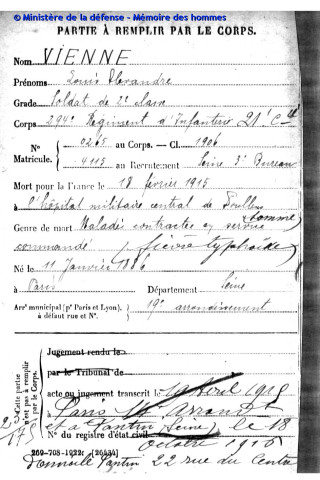 © Ministère de la défense - Mémoire des hommes
PARTIE À REMPLIR PAR LE CORPS.
Nom VIENNE
Prénoms Louis Alexandre
Grade Soldat de 2e classe
Corps 294e Régiment d'Infanterie 21e Cie
N° 0265 au Corps. — Cl. 1906
Matricule. 4115 au Recrutement Seine 3e Bureau
Mort pour la France le 18 février 1915
à l'hôpital militaire central de Doullens
(Somme)
Genre de mort Maladie contractée en service
commandé (fièvre typhoïde)
Né le 11 Janvier 1886
à Paris Département Seine
Arrt municipal (pr Paris et Lyon), à défaut rue et N°. 19e arrondissement
Cette partie n'est pas à remplir par le Corps.
Jugement rendu le
par le Tribunal de
acte ou jugement transcrit le 19 Avril 1915
à Paris
et à Pantin (Seine) le 18
N° du registre d'état civil Octobre 1916
269-708-1922. [26434]
Pantin 22 rue du Centre